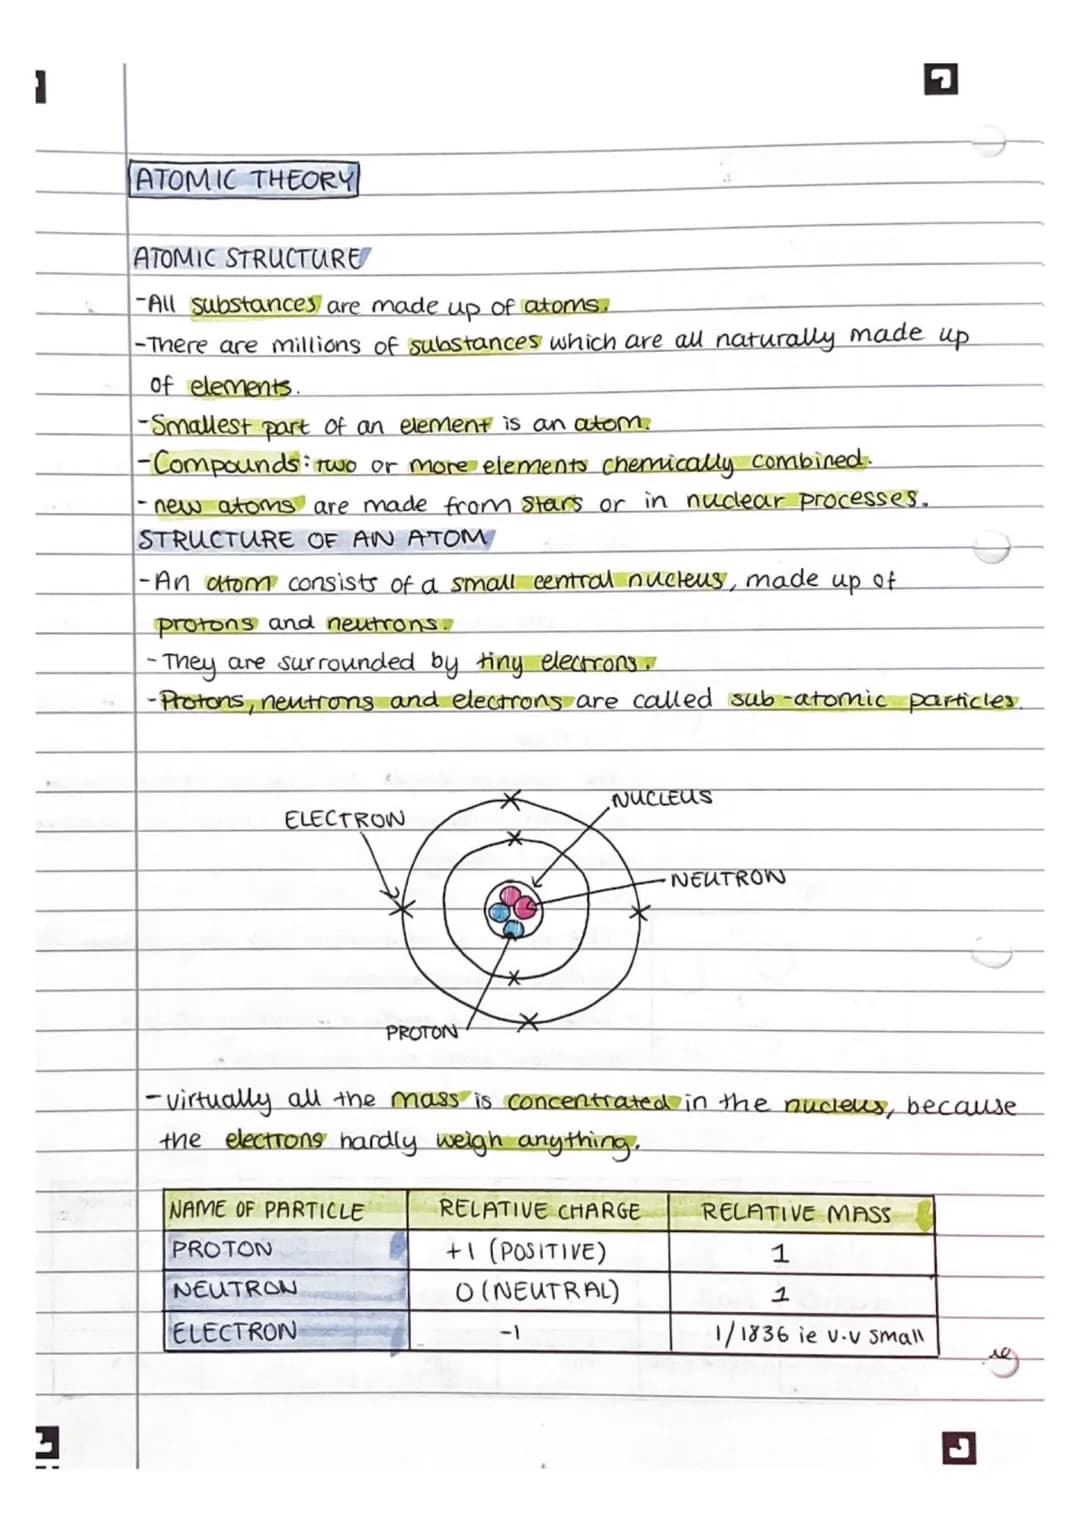 ATOMIC THEORY
ATOMIC STRUCTURE
-All substances are made up of atoms.
-There are millions of substances which are all naturally made up
of elements.
-Smallest part of an element is an atom.
-Compounds: two or more elements chemically combined.
- new atoms are made from stars or in nuclear processes.
STRUCTURE OF AN ATOM
-An atom consists of a small central nucleus, made up of
protons and neutrons.
- They are surrounded by tiny electrons.
-Protons, neutrons and electrons are called sub-atomic particles.
NUCLEUS
ELECTRON
NEUTRON
PROTON
- virtually all the mass is concentrated in the nucleus, because
the electrons hardly weigh anything.
NAME OF PARTICLE RELATIVE CHARGE RELATIVE MASS
PROTON +1 (POSITIVE) 1
NEUTRON 0 (NEUTRAL) 1
ELECTRON -1 1/1836 ie v.v small